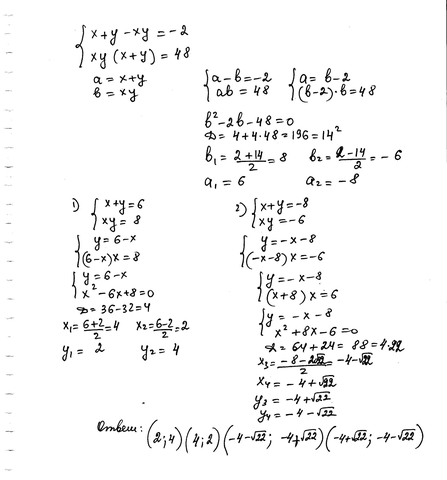 { x+y−xy = −2
{ xy(x+y) = 48
a = x+y
b = xy
{ a−b = −2
{ ab = 48
{ a = b−2
{ (b−2)·b = 48
b² −2b −48 = 0
D = 4+4·48 = 196 = 14²
b₁ = (2+14)/2 = 8 b₂ = (2−14)/2 = −6
a₁ = 6 a₂ = −8
1) { x+y = 6
{ xy = 8
{ y = 6−x
{ (6−x)x = 8
{ y = 6−x
{ x² −6x+8 = 0
D = 36−32 = 4
x₁ = (6+2)/2 = 4 x₂ = (6−2)/2 = 2
y₁ = 2 y₂ = 4
2) { x+y = −8
{ xy = −6
{ y = −x−8
{ (−x−8)x = −6
{ y = −x−8
{ (x+8)x = 6
{ y = −x−8
{ x² +8x −6 = 0
D = 64+24 = 88 = 4·22
x₃ = (−8−2√22)/2 = −4−√22
x₄ = −4+√22
y₃ = −4+√22
y₄ = −4−√22
Ответ: (2; 4) (4; 2) (−4−√22; −4+√22) (−4+√22; −4−√22)